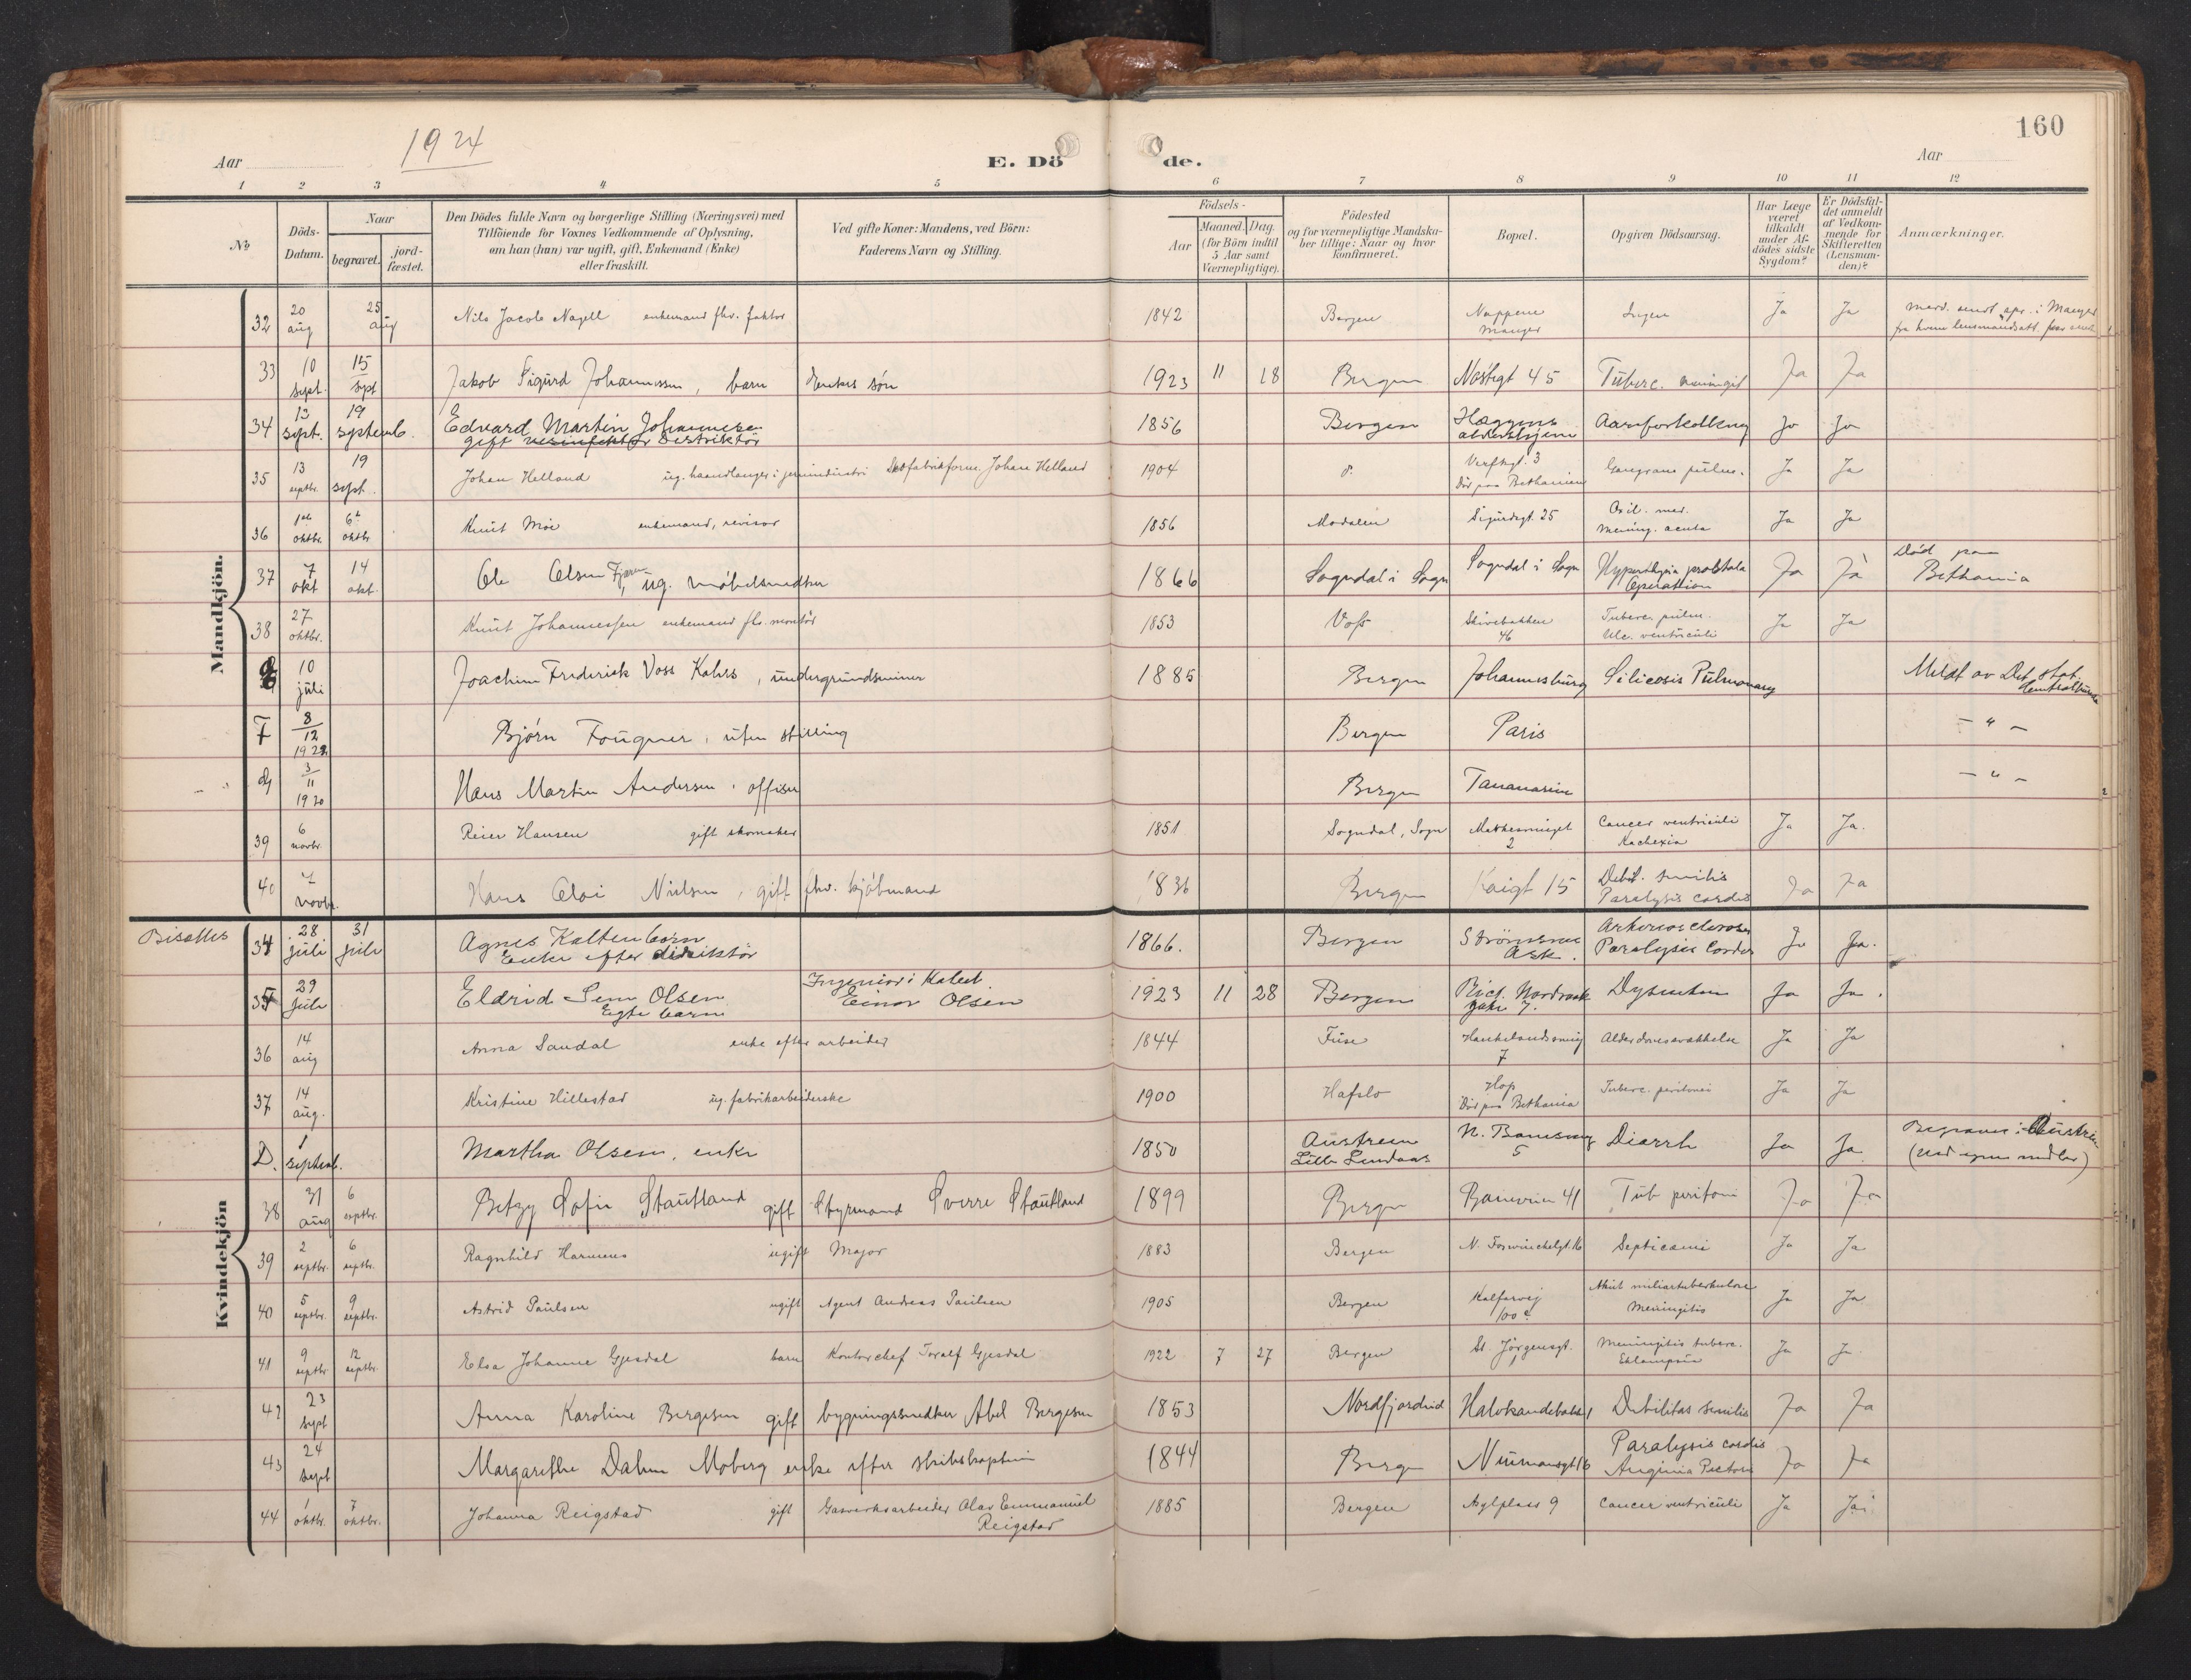 160
1924
Aar
E. Dö
de.
Aar
1 2 3 4 5 6 7 8 9 10 11 12
No
Döds-Datum.
Naar
begravet.
jord-fæstet.
Den Dödes fulde Navn og borgerlige Stilling (Næringsvei) med
Tilföiende for Voxnes Vedkommende af Oplysning,
om han (hun) var ugift, gift, Enkemand (Enke)
eller fraskilt.
Ved gifte Koner: Mandens, ved Börn:
Faderens Navn og Stilling.
Födsels-
Aar
Maaned. Dag.
(for Börn indtil
5 Aar samt
Værnepligtige).
Födested
og for værnepligtige Mandska-
ber tillige: Naar og hvor
konfirmeret.
Bopæl.
Opgiven Dödsaarsag.
Har Læge
været
tilkaldt
under Af-
dödes sidste
Sygdom?
Er Dödsfal-
det anmeldt
af Vedkom-
mende for
Skifteretten
(Lensman-
den)?
Anmærkninger.
Mandkjön.
32 20 aug 25 aug Nils Jacob Nagell enkemand fhv. faktor 1842 Bergen Nappen Manger Ingen Ja Ja i Manger
33 10 sept. 15 sept Jakob Sigurd Johannessen, barn Enkes søn 1923 11 18 Bergen Nøstegt 45 Tuberc. meningit Ja Ja
34 13 sept. 19 septemb. Edvard Martin Johannesen
gift 1856 Bergen Hæggens
aldershjem Aareforkalkning Ja Ja
35 13 septbr. 19 sept. Johan Helland ug. haandlanger i jernindustri Johan Helland 1904 Verftsgt. 3
Død paa Bethanien Gangræna pulm. Ja Ja
36 1ste oktbr. 6te oktbr Knut Moe enkemand, revisor 1856 Modalen Sigurdsgt. 25 Mening. acuta Ja Ja
37 7 okt 14 okt. Ole Olsen Fjæren, ug. møbelsnedker 1866 Sogndal i Sogn Sogndal i Sogn Hypertrofia prostata
Operation Ja Ja Død paa
Bethania
38 27 oktbr. Knut Johannessen enkemand fhv. montør 1853 Voss Skivebakken
46 Tuberc. pulm.
Ulc. ventriculi Ja Ja
10 juli Joachim Frederick Voss Kahrs, undergrundsminer 1885 Bergen Johannesburg Silicosis Pulmonary Meldt av Det stat.
Centralbureau
F 8/12 1922 Bjørn Fougner, uten stilling Bergen Paris — " —
3/11 1920 Hans Martin Andersen, offiser Bergen Tananarive — " —
39 6 novbr. Reier Hansen gift skomaker 1851 Sogndal, Sogn 2 Cancer ventriculi
Kachexia Ja Ja.
40 7 novbr. Hans Nielsen, gift fhv. kjøbmand 1836 Bergen Kaigt 15 Debil. senilis
Paralysis cordis Ja Ja
Kvindekjön
Bisattes 34 28 juli 31 juli Agnes Kaltenborn
Enke efter 1866. Bergen Strømsnes
Ask. Arteriosclerose
Paralysis Cordis Ja Ja.
35 29 juli Eldrid Sem Olsen
Egte barn Ingeniør i
Einar Olsen 1923 11 28 Bergen Rich. Nordraak
gate 7. Dysenteri Ja Ja.
36 14 aug Anna Sandal enke efter arbeider 1844 Fuse Haukelandsveig
7 Alderdomssvækkelse Ja Ja
37 14 aug. Kristine Hillestad ug. fabrikarbeiderske 1900 Hafslo Hop
Død paa Bethania Tuberc. peritonei Ja Ja
D. 1 septemb. Martha Olsen, enke 1850 Austreim
Lille Lindaas 5 Diarrh Ja Ja Begraves i Austreim
(ved egne midler)
38 31 aug 6 septbr. Betzy Sofie Stautland gift Styrmand Sverre Stautland 1899 Bergen Baneveien 41 Tub peritoni Ja Ja
39 2 septbr. 6 septbr. Ragnhild Harmens ugift Major 1883 Bergen N. Foswinckelgt. 16 Septicæmi Ja Ja
40 5 septbr. 9 septbr. Astrid Paulsen ugift Agent Andreas Paulsen 1905 Bergen Kalfarvej
100 c Akut miliærtuberkulose
Meningitis Ja Ja
41 9 septbr. 12 septbr. Elsa Johanne Gjesdal barn Kontorchef Toralf Gjesdal 1922 7 27 Bergen St. Jørgensgt.
1 Meningitis tuberc.
Eklampsia Ja Ja
42 23 sept Anna Karoline Bergesen gift bygningssnedker Abel Bergesen 1853 Nordfjordeid Halvkandebakk 1 Debilitas senilis Ja Ja
43 24 sept Margarethe Dahm Moberg enke efter skibskaptein 1844 Bergen Neumannsgt 16 Paralysis cordis
Anginia Pectoris Ja Ja
44 1 oktbr. 7 oktbr. Johanna Reigstad gift Gasverksarbeider Olav Emmanuel
Reigstad 1885 Bergen Asylplass 9 Cancer ventriculi Ja Ja